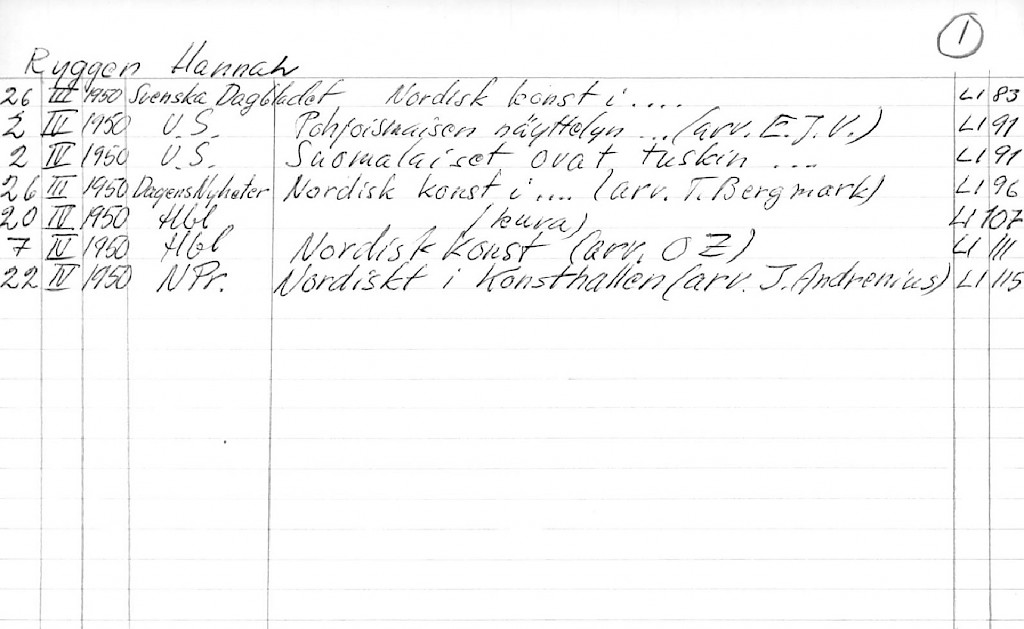 1
Ryggen Hannah
26 III 1950 Svenska Dagbladet Nordisk konst i .... LI 83
2 IV 1950 U.S. Pohjoismaisen näyttelyn ... (arv. E.J.V.) LI 91
2 IV 1950 U.S. Suomalaiset ovat tuskin ... LI 91
26 III 1950 Dagens Nyheter Nordisk konst i .... (arv. T. Bergmark) LI 96
20 IV 1950 Hbl (kuva) LI 107
7 IV 1950 Hbl Nordisk konst (arv. O Z) LI 111
22 IV 1950 NPr. Nordiskt i Konsthallen (arv. J. Andrenius) LI 115